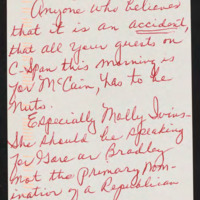 Anyone who believes
that it is an accident,
that all your guests on
C-Span this morning is
for McCain, has to be
nuts.
Especially Molly Ivins-
She should be speaking
for Gore or Bradley
not the Primary Nom-
ination of a Republican